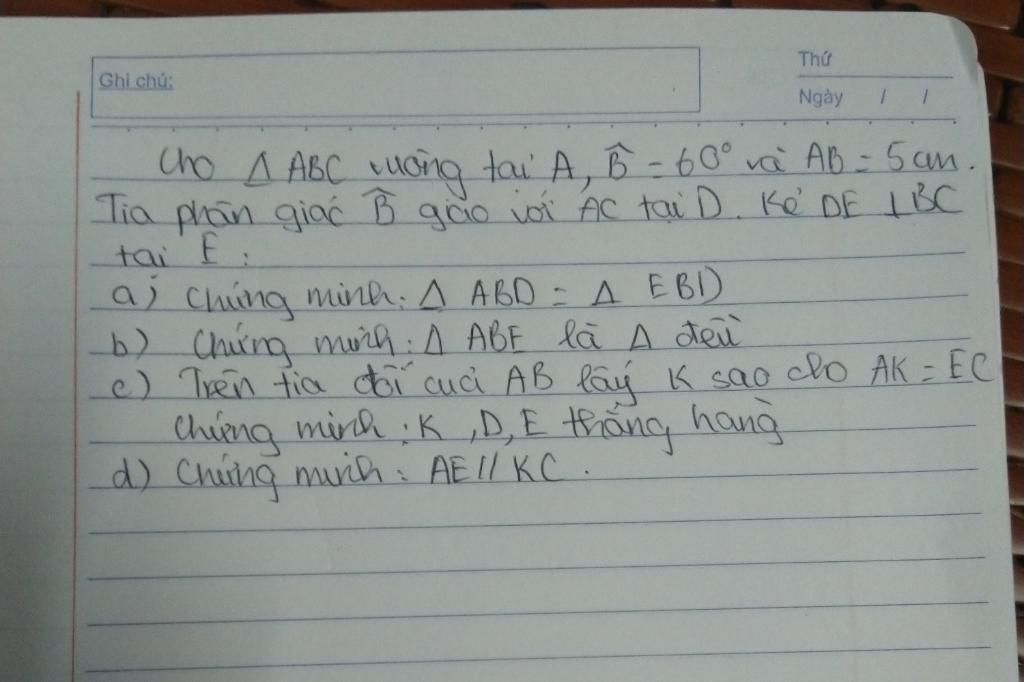 Ghi chú:
Thứ
Ngày / /
Cho Δ ABC vuông tại A, B̂ = 60° và AB = 5cm.
Tia phân giác B̂ giao với AC tại D. Kẻ DE ⊥ BC
tại E :
a) Chứng minh: Δ ABD = Δ EBD
b) Chứng minh: Δ ABE là Δ đều
c) Trên tia đối của AB lấy K sao cho AK = EC
Chứng minh: K, D, E thẳng hàng
d) Chứng minh: AE // KC.